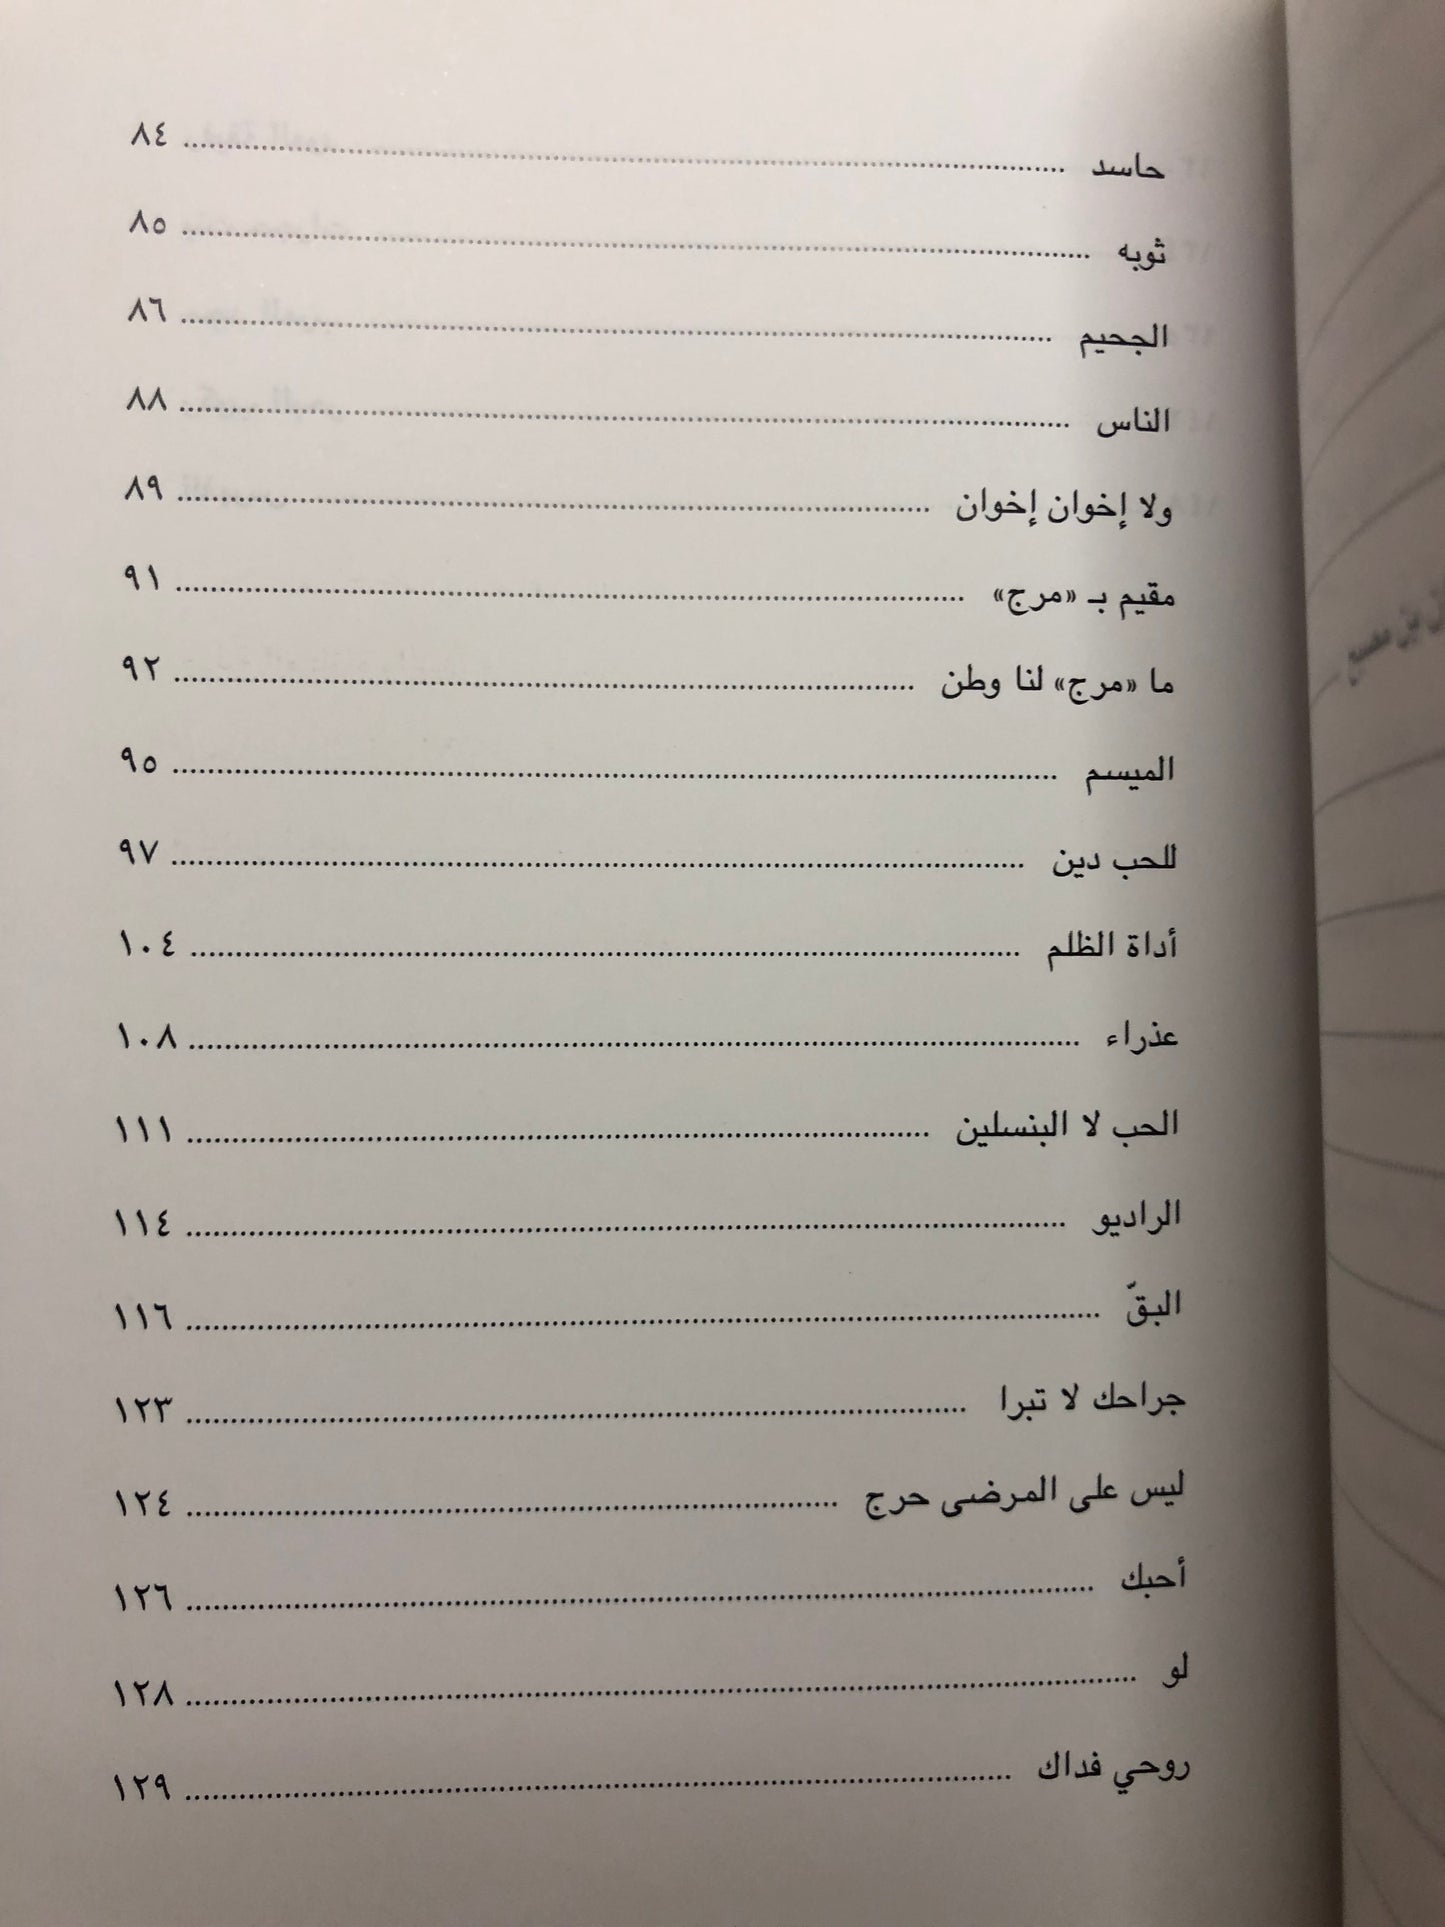 حاسد ........ ٨٤
ثوبه ........ ٨٥
الجحيم ........ ٨٦
الناس ........ ٨٨
ولا إخوان إخوان ........ ٨٩
مقيم بـ «مرج» ........ ٩١
ما «مرج» لنا وطن ........ ٩٢
الميسم ........ ٩٥
للحب دين ........ ٩٧
أداة الظلم ........ ١٠٤
عذراء ........ ١٠٨
الحب لا البنسلين ........ ١١١
الراديو ........ ١١٤
البقّ ........ ١١٦
جراحك لا تبرا ........ ١٢٣
ليس على المرضى حرج ........ ١٢٤
أحبك ........ ١٢٦
لو ........ ١٢٨
روحي فداك ........ ١٢٩